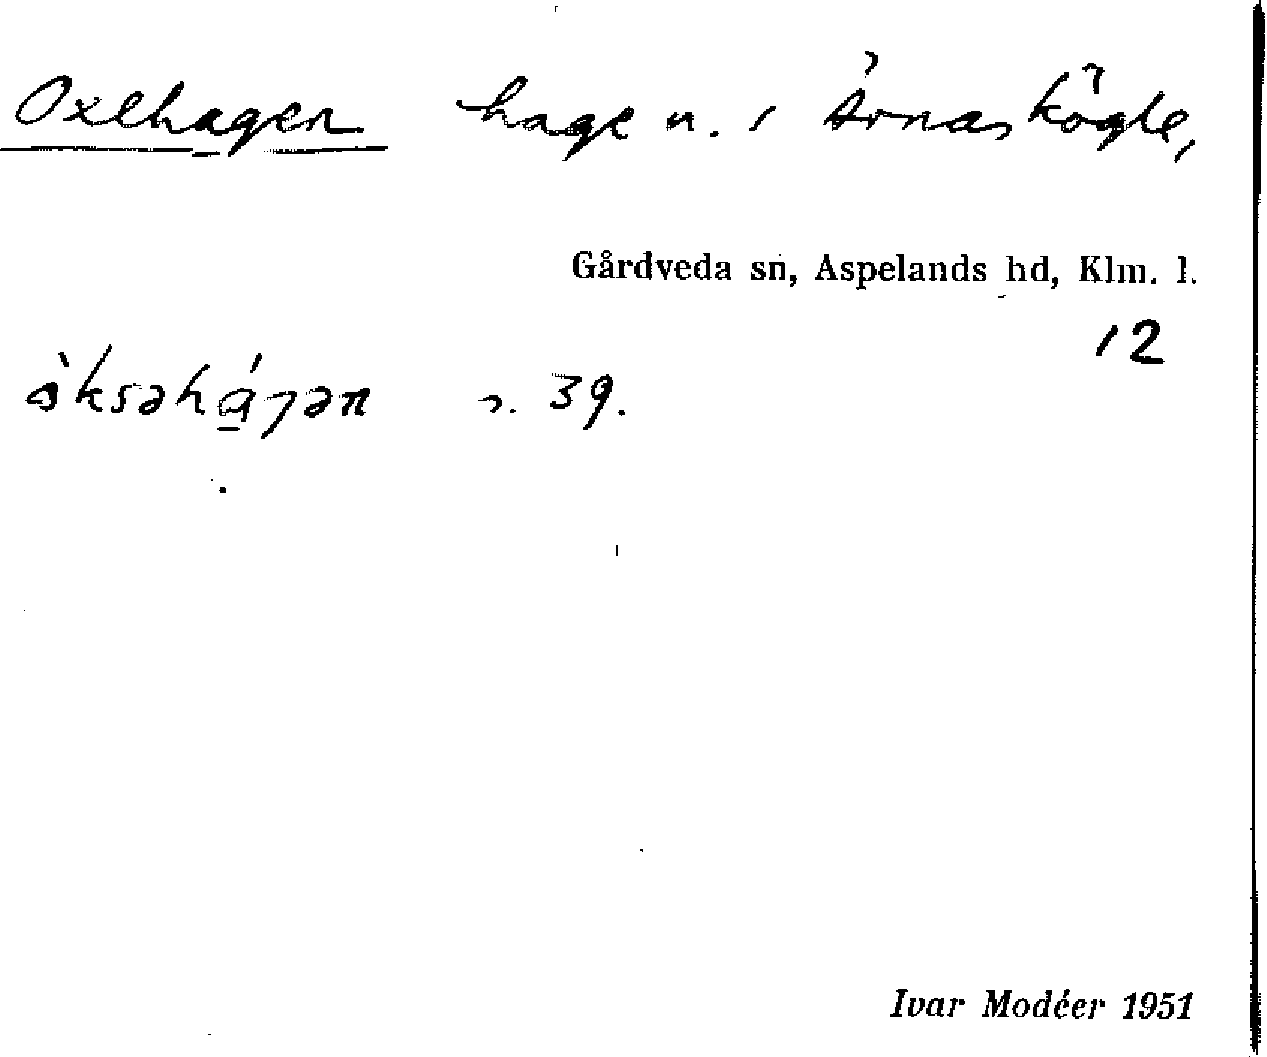 Oxehagen hage n. i Årnaskögle,
Gårdveda sn, Aspelands hd, Klm. l.
12
s. 39.
Ivar Modéer 1951